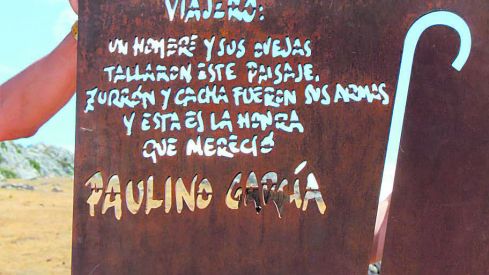 VIAJERO:
UN HOMBRE Y SUS OVEJAS
TALLARON ESTE PAISAJE.
ZURRÓN Y CACHA FUERON SUS ARMAS
Y ESTA ES LA HONRA
QUE MERECIÓ
PAULINO GARCÍA